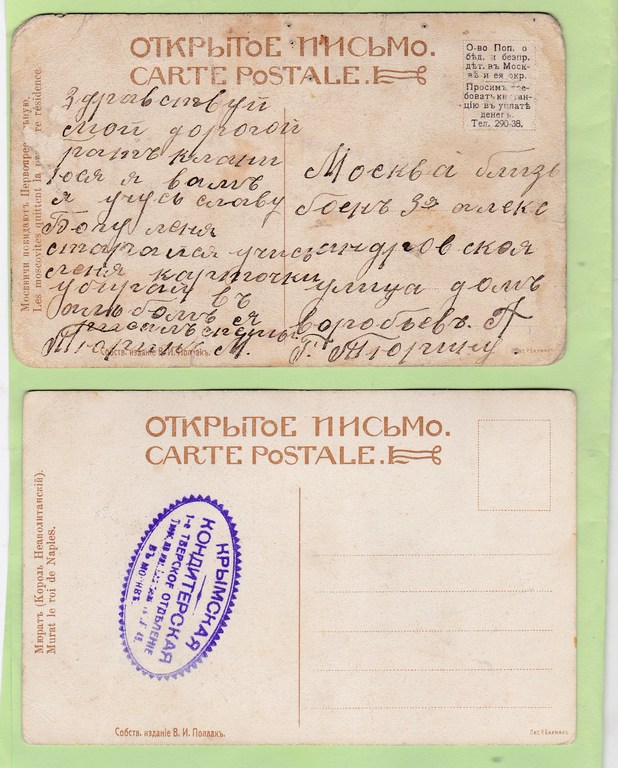 ОТКРЫТОЕ ПИСЬМО.
CARTE POSTALE.
О-во Поп. о
бѣд. и безпр.
дѣт. въ Моск-
вѣ и ея окр.
Просимъ тре-
бовать квитан-
цію въ уплатѣ
денегъ.
Тел. 290-38.
Москвичи покидаютъ Первопрестольную.
Les moscovites quittent la résidence.
Здравствуй
мой дорогой
клани
юся я вамъ
я учусь славу
Богу леня
старался учись
леня карточки
убирай въ
альбомъ
Тюринъ М.
Москва близь
боенъ 3я алекс
андровская
улица домъ
воробьевъ. П
Г. Тюрину
Собств. изданіе В. И. Поллакъ.
ОТКРЫТОЕ ПИСЬМО.
CARTE POSTALE.
Мюратъ (Король Неаполитанскій).
Murat le roi de Naples.
КРЫМСКАЯ
КОНДИТЕРСКАЯ
1-е ТВЕРСКОЕ ОТДѢЛЕНІЕ
Собств. изданіе В. И. Поллакъ.